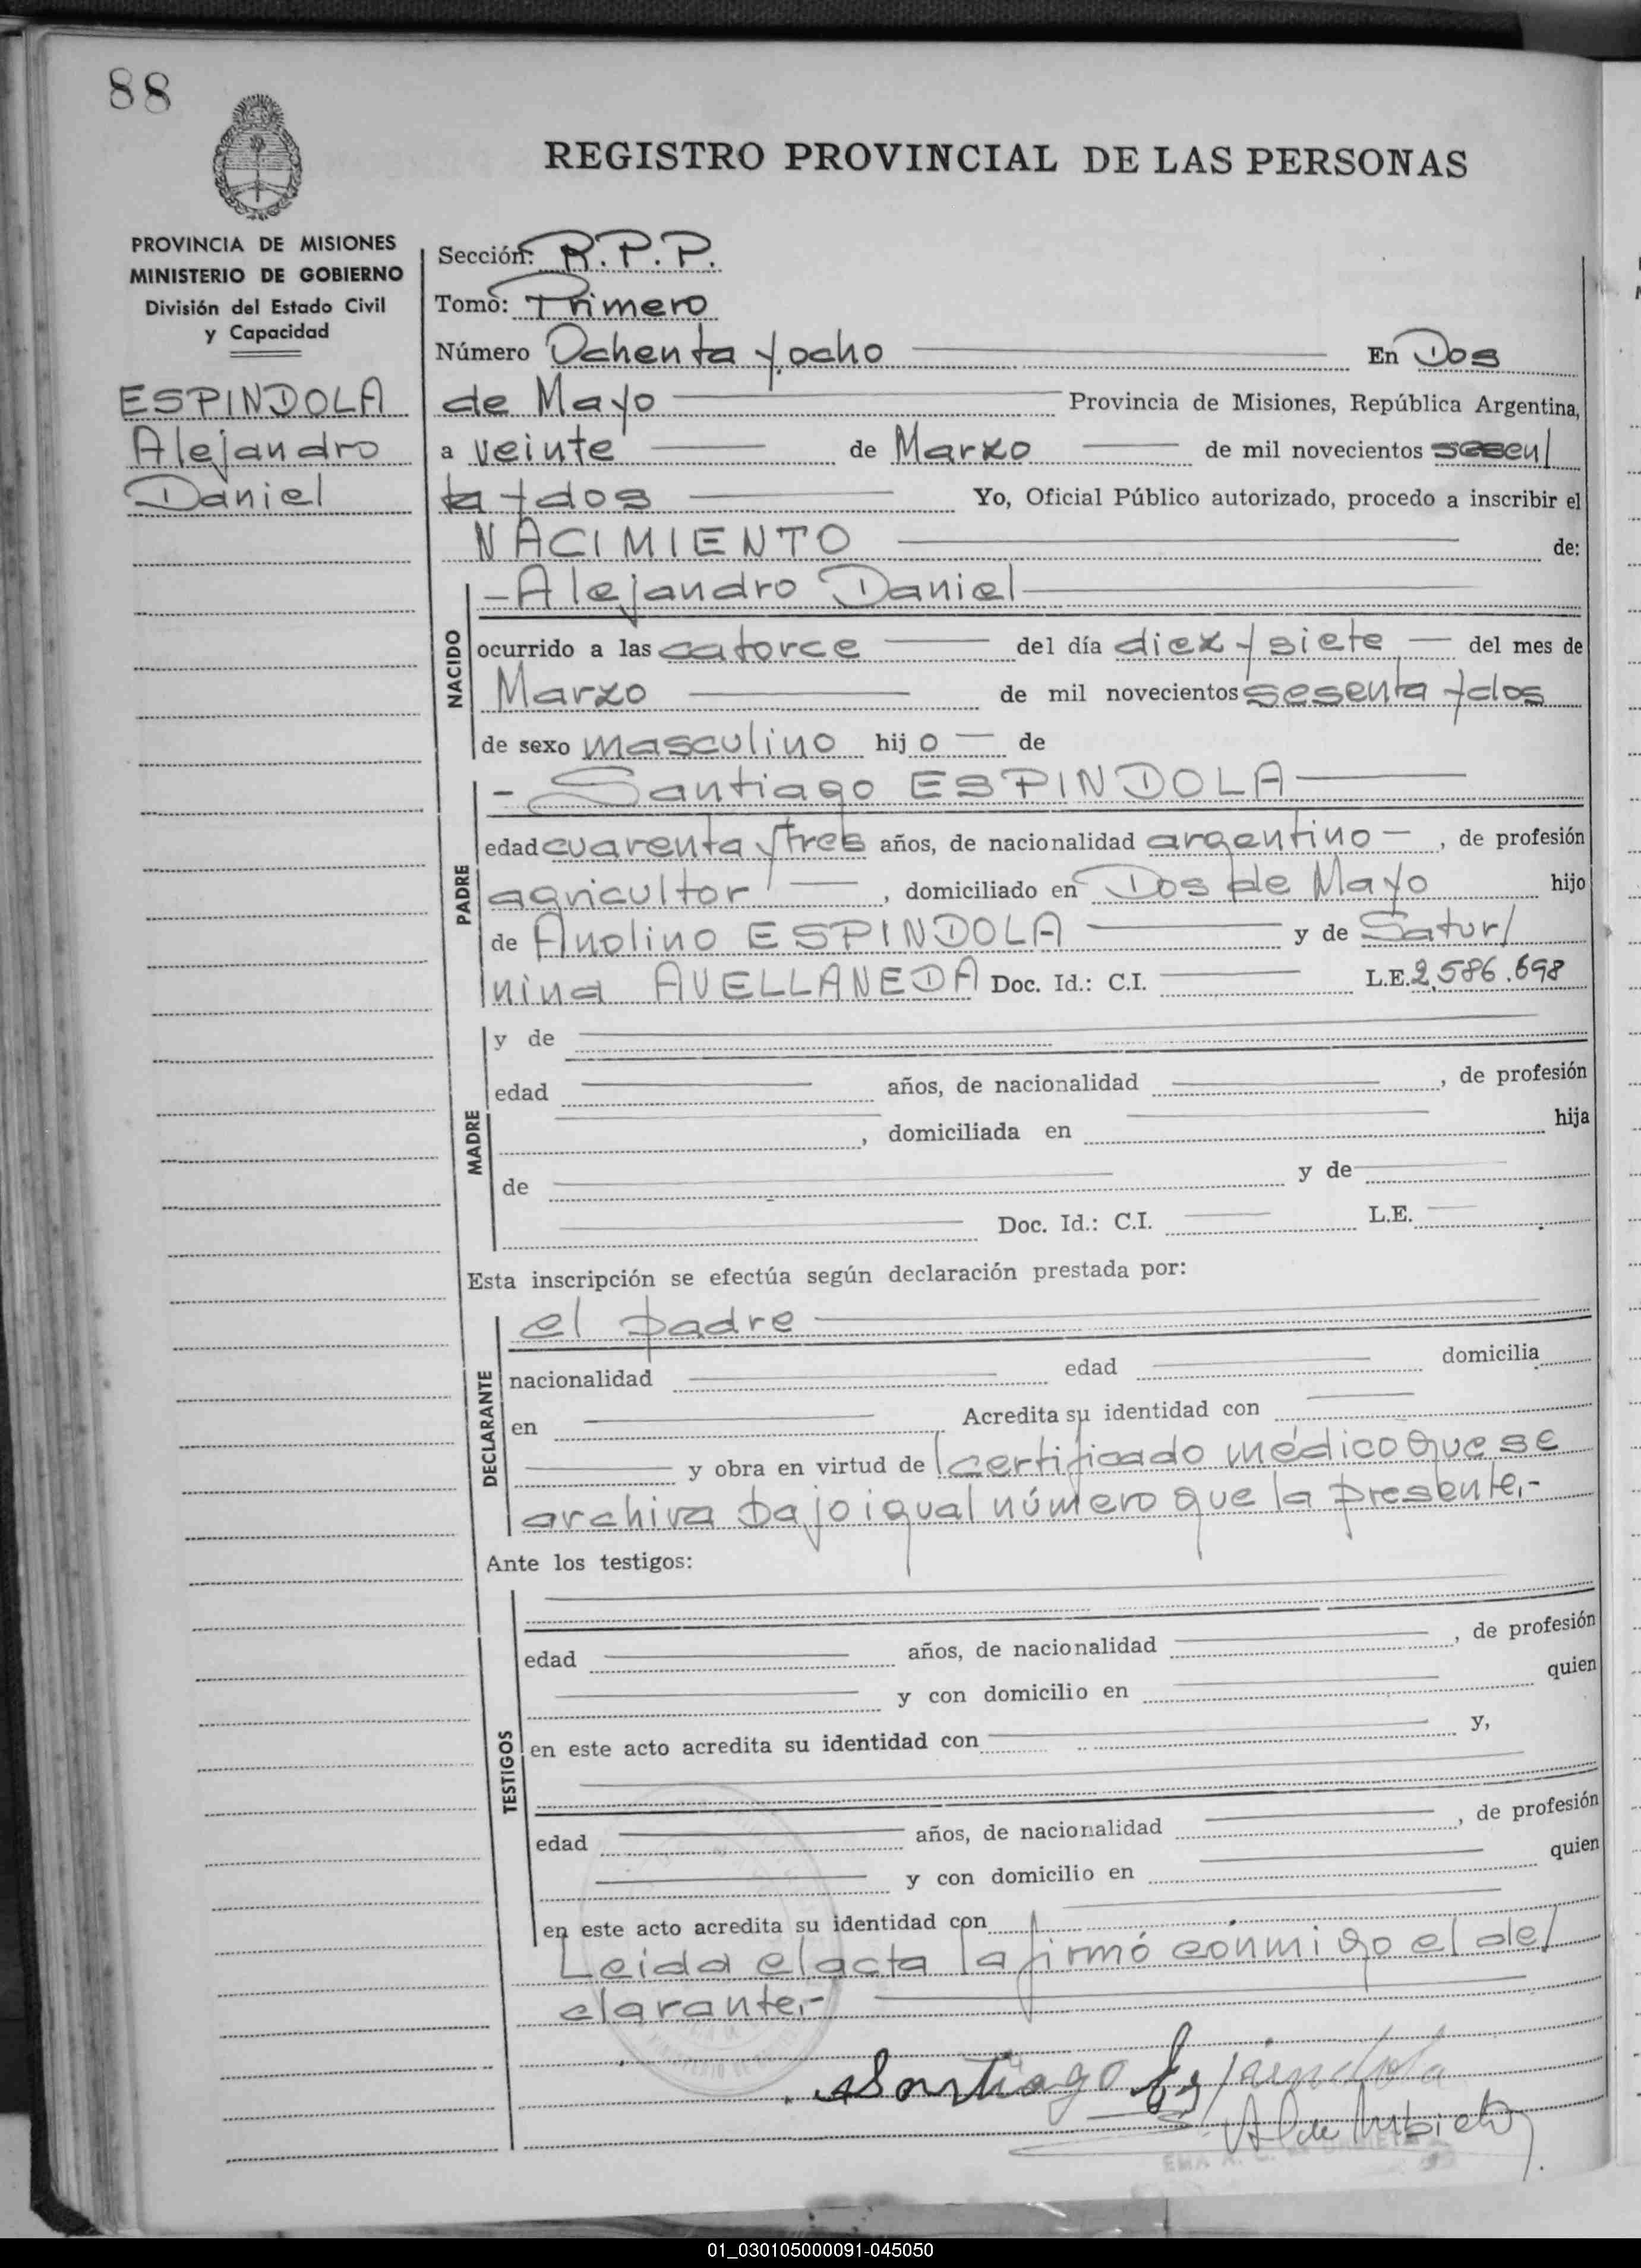 88
REGISTRO PROVINCIAL DE LAS PERSONAS
PROVINCIA DE MISIONES
MINISTERIO DE GOBIERNO
División del Estado Civil
y Capacidad
ESPINDOLA
Alejandro
Daniel
Sección: R.P.P.
Tomo: Primero
Número Ochenta y ocho En Dos
de Mayo Provincia de Misiones, República Argentina,
a veinte de Marzo de mil novecientos sesen/
ta y dos Yo, Oficial Público autorizado, procedo a inscribir el
NACIMIENTO de:
NACIDO
-Alejandro Daniel
ocurrido a las catorce del día diez y siete del mes de
Marzo de mil novecientos sesenta y dos
de sexo masculino hijo de
PADRE
- Santiago ESPINDOLA
edad cuarenta y tres años, de nacionalidad argentino, de profesión
agricultor, domiciliado en Dos de Mayo hijo
de ESPINDOLA y de Satur/
nina AVELLANEDA Doc. Id.: C.I. L.E. 2.586.698
MADRE
y de
edad años, de nacionalidad , de profesión
, domiciliada en hija
de y de
Doc. Id.: C.I. L.E.
Esta inscripción se efectúa según declaración prestada por:
DECLARANTE
el padre
nacionalidad edad domicilia
en Acredita su identidad con
y obra en virtud de certificado médico que se
archiva bajo igual número que la presente.-
Ante los testigos:
TESTIGOS
edad años, de nacionalidad , de profesión
y con domicilio en quien
en este acto acredita su identidad con y,
edad años, de nacionalidad , de profesión
y con domicilio en quien
en este acto acredita su identidad con
Leida el acta la firmó conmigo el de/
clarante.-
Santiago Espindola
01_030105000091-045050